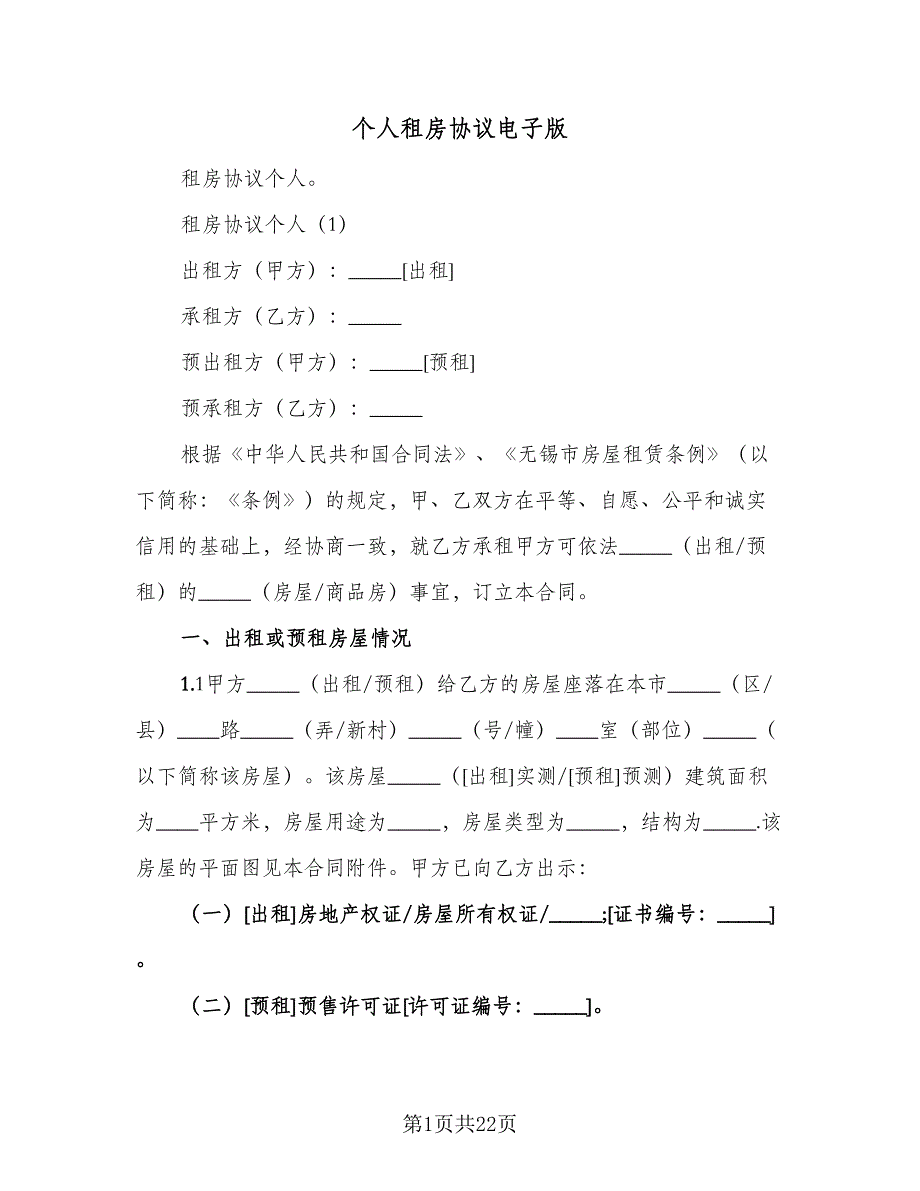 个人租房协议电子版
租房协议个人。
租房协议个人（1）
出租方（甲方）：_____[出租]
承租方（乙方）：_____
预出租方（甲方）：_____[预租]
预承租方（乙方）：_____
根据《中华人民共和国合同法》、《无锡市房屋租赁条例》（以
下简称：《条例》）的规定，甲、乙双方在平等、自愿、公平和诚实
信用的基础上，经协商一致，就乙方承租甲方可依法_____（出租/预
租）的_____（房屋/商品房）事宜，订立本合同。
一、出租或预租房屋情况
1.1甲方_____（出租/预租）给乙方的房屋座落在本市_____（区/
县）____路_____（弄/新村）_____（号/幢）____室（部位）_____（
以下简称该房屋）。该房屋_____（[出租]实测/[预租]预测）建筑面积
为____平方米，房屋用途为_____，房屋类型为_____，结构为_____.该
房屋的平面图见本合同附件。甲方已向乙方出示：
（一）[出租]房地产权证/房屋所有权证/_____;[证书编号：_____]
。
（二）[预租]预售许可证[许可证编号：_____]。
第1页共22页